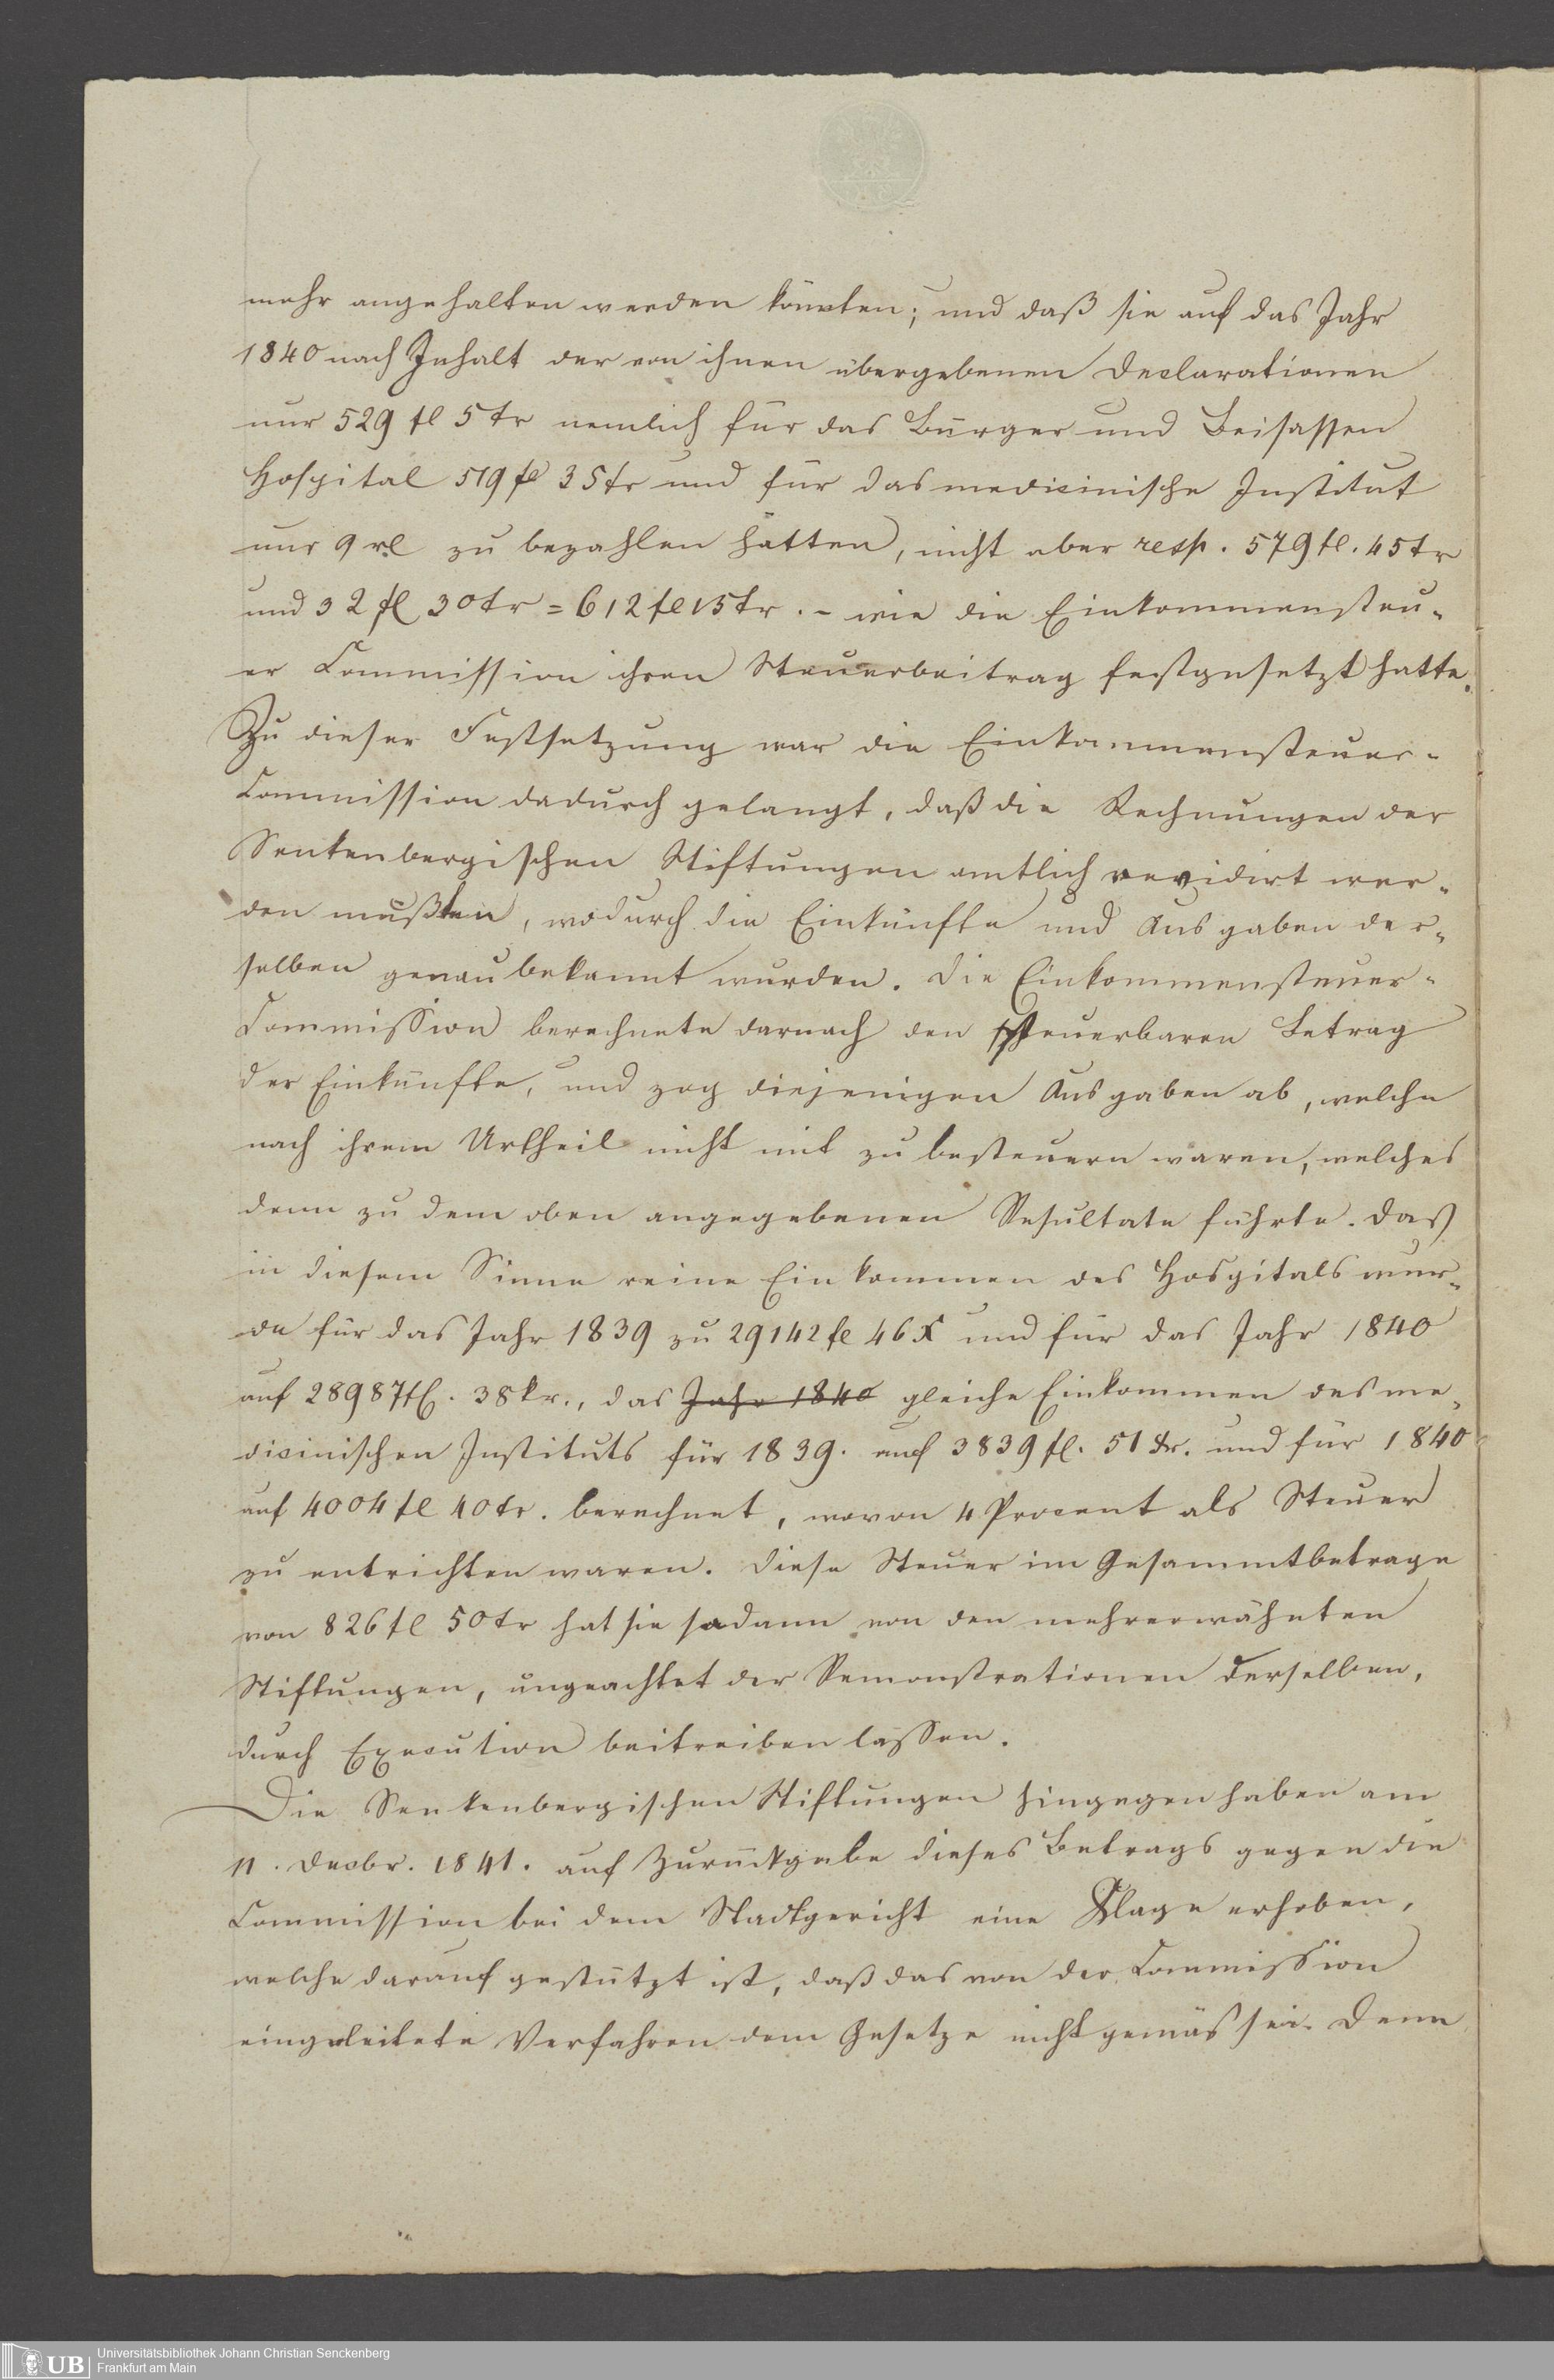 mehr angehalten werden könnten; und daß sie auf das Jahr
1840 nach Inhalt der von ihnen übergebenen Declarationen
nur 529 fl 5 kr nemlich für das Bürger und Beisassen
Hospital 519 fl 35 kr und für das medicinische Institut
nur 9 zu bezahlen hätten, nicht aber resp. 579 fl. 45 kr
und 32 fl 30 kr = 612 fl 15 kr. – wie die Einkommensteu-
er Commission ihren Steuerbeitrag festgesetzt hatte.
Zu dieser Festsetzung war die Einkommensteuer-
Commission dadurch gelangt, daß die Rechnungen der
Senkenbergischen Stiftungen amtlich revidirt wer-
den mußten, wodurch die Einkünfte und Ausgaben der-
selben genau bekannt wurden. Die Einkommensteuer-
Commission berechnete darnach den steuerbaren Betrag
der Einkünfte, und zog diejenigen Ausgaben ab, welche
nach ihrem Urtheil nicht mit zu besteuern waren, welches
denn zu dem oben angegebenen Resultate führte. Das
in diesem Sinne reine Einkommen des Hospitals wur-
de für das Jahr 1839 zu 29142 fl 46 x und für das Jahr 1840
auf 28987 fl. 38 kr., das Jahr 1840 gleiche Einkommen des me-
dicinischen Instituts für 1839. auf 3839 fl. 51 kr. und für 1840
auf 4004 fl 40 kr. berechnet, wovon 4 Procent als Steuer
zu entrichten waren. Diese Steuer im Gesammtbetrage
von 826 fl 50 kr hat sie sodann von den mehrerwähnten
Stiftungen, ungeachtet der Remonstrationen derselben,
durch Execution beitreiben lassen.
Die Senkenbergischen Stiftungen hingegen haben am
11. Decbr. 1841. auf Zurückgabe dieses Betrags gegen die
Commission bei dem Stadtgericht eine Klage erhoben,
welche darauf gestützt ist, daß das von der Commission
eingeleitete Verfahren dem Gesetze nicht gemäs sei. Denn
Universitätsbibliothek Johann Christian Senckenberg
UB Frankfurt am Main